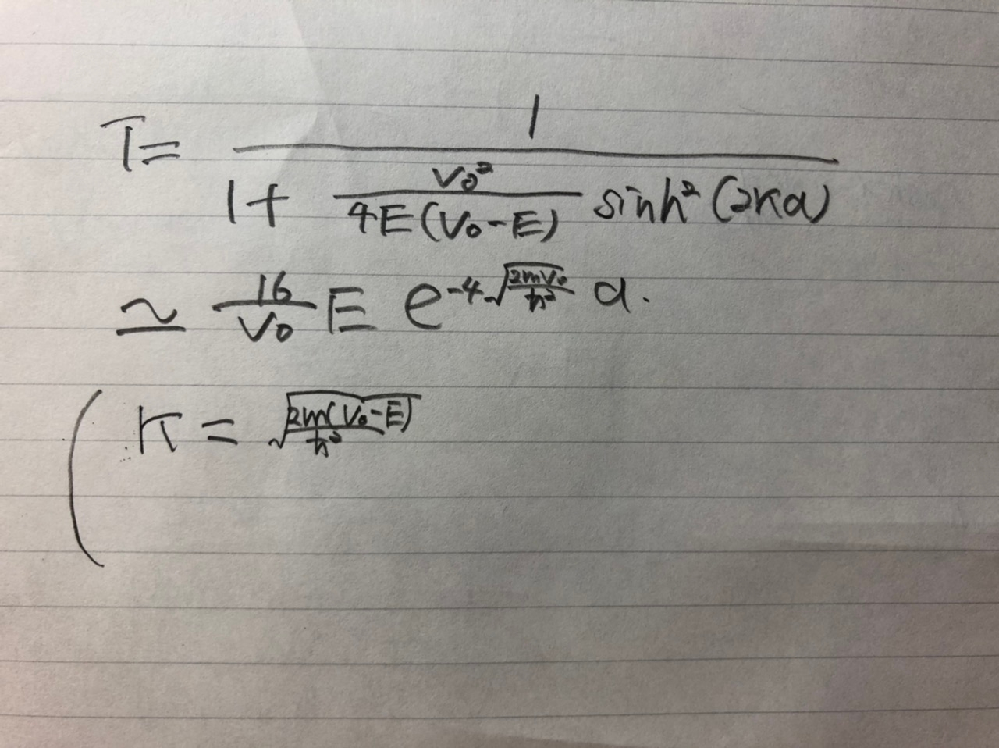 T = \frac{1}{1 + \frac{V_0^2}{4E(V_0 - E)} \sinh^2(2κa)}
≃ \frac{16}{V_0} E e^{-4\sqrt{\frac{2mV_0}{ħ^2}} a}.
( κ = \sqrt{\frac{2m(V_0 - E)}{ħ^2}}